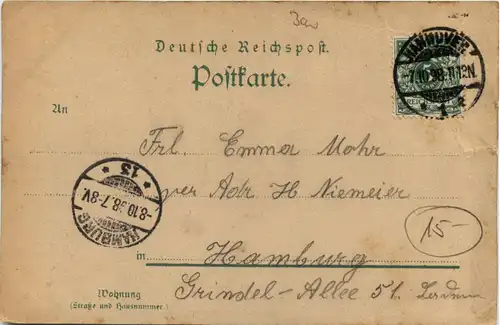 Deutsche Reichspost.
Postkarte.
HANNOVER
-7.10.98.11-12N.
* 1. *
REICHSPOST
An
Frl. Emma Mohr
per Adr H Niemeier
* 13 *
-8.10.98.7-8V.
HAMBURG
15-
in Hamburg
Grindel-Allee 51.
Wohnung
(Straße und Hausnummer.)